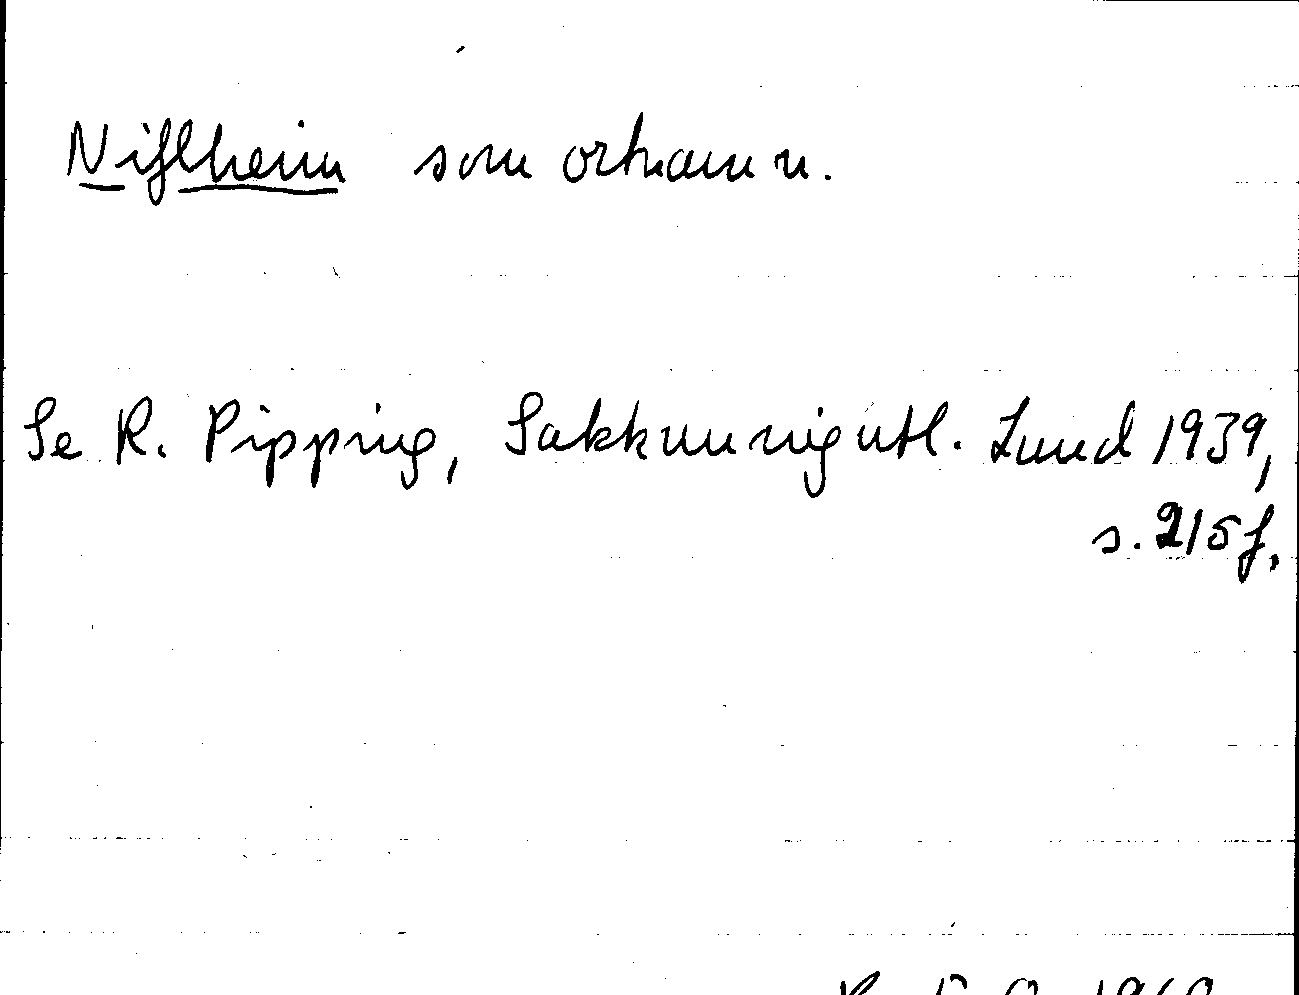 Niflheim som ortnamn.
Se R. Pipping, Sakkunnigutl. Lund 1939,
s. 215 f.